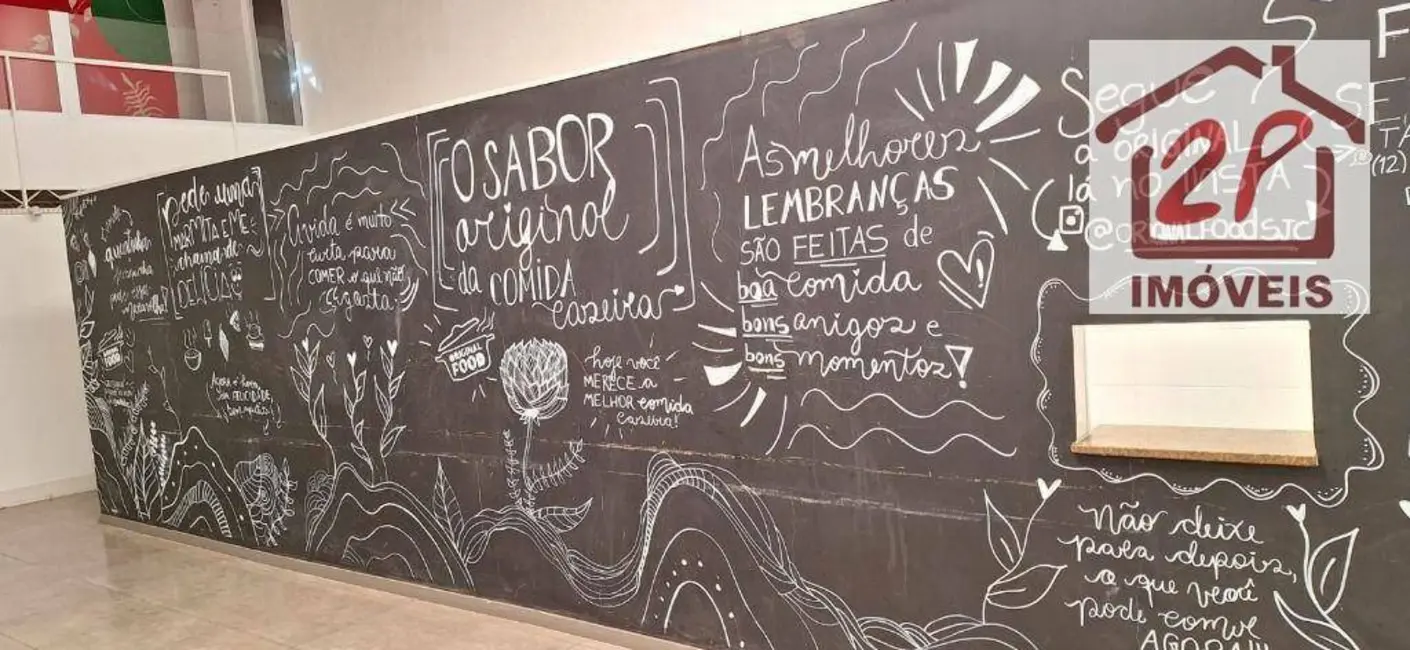 Pede uma
MARMITA E ME
chama de
DELÍCIA
A vida é muito
curta para
COMER o que não
se gosta.
O SABOR
original
da COMIDA
caseira
ORIGINAL
FOOD
hoje você
MERECE a
MELHOR comida
caseira!
As melhores
LEMBRANÇAS
SÃO FEITAS de
boa comida
bons amigos e
bons momentos!
Segue
a ORIGINAL
lá no INSTA
@ORIGINALFOODSJC
(12)
2P
IMÓVEIS
Não deixe
para depois,
o que você
pode comer
AGORA!!!